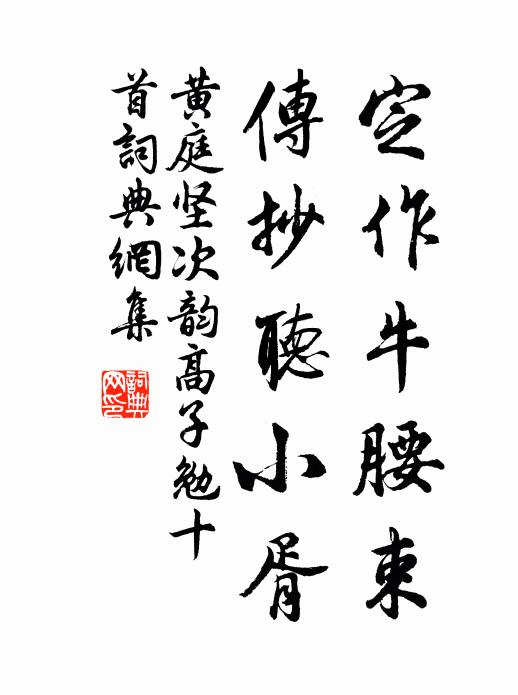 定作牛腰束
傳抄聽小胥
黄庭坚次韵高子勉十
首詞典網集
詞典
网印